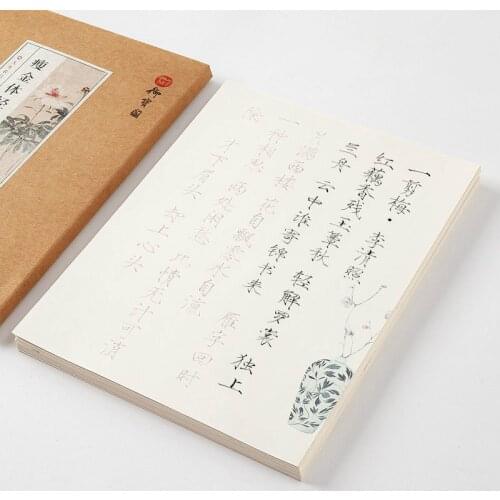 瘦金体
御寶閣
一剪梅·李清照
红藕香残玉簟秋 轻解罗裳 独上
兰舟 云中谁寄锦书来 雁字回时
月满西楼 花自飘零水自流
一种相思 两处闲愁 此情无计可消
除 才下眉头 却上心头